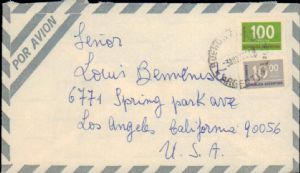 POR AVION
Señor
Louis
6771 Spring park ave
Los Angeles California 90056
U.S.A.
100
10.00